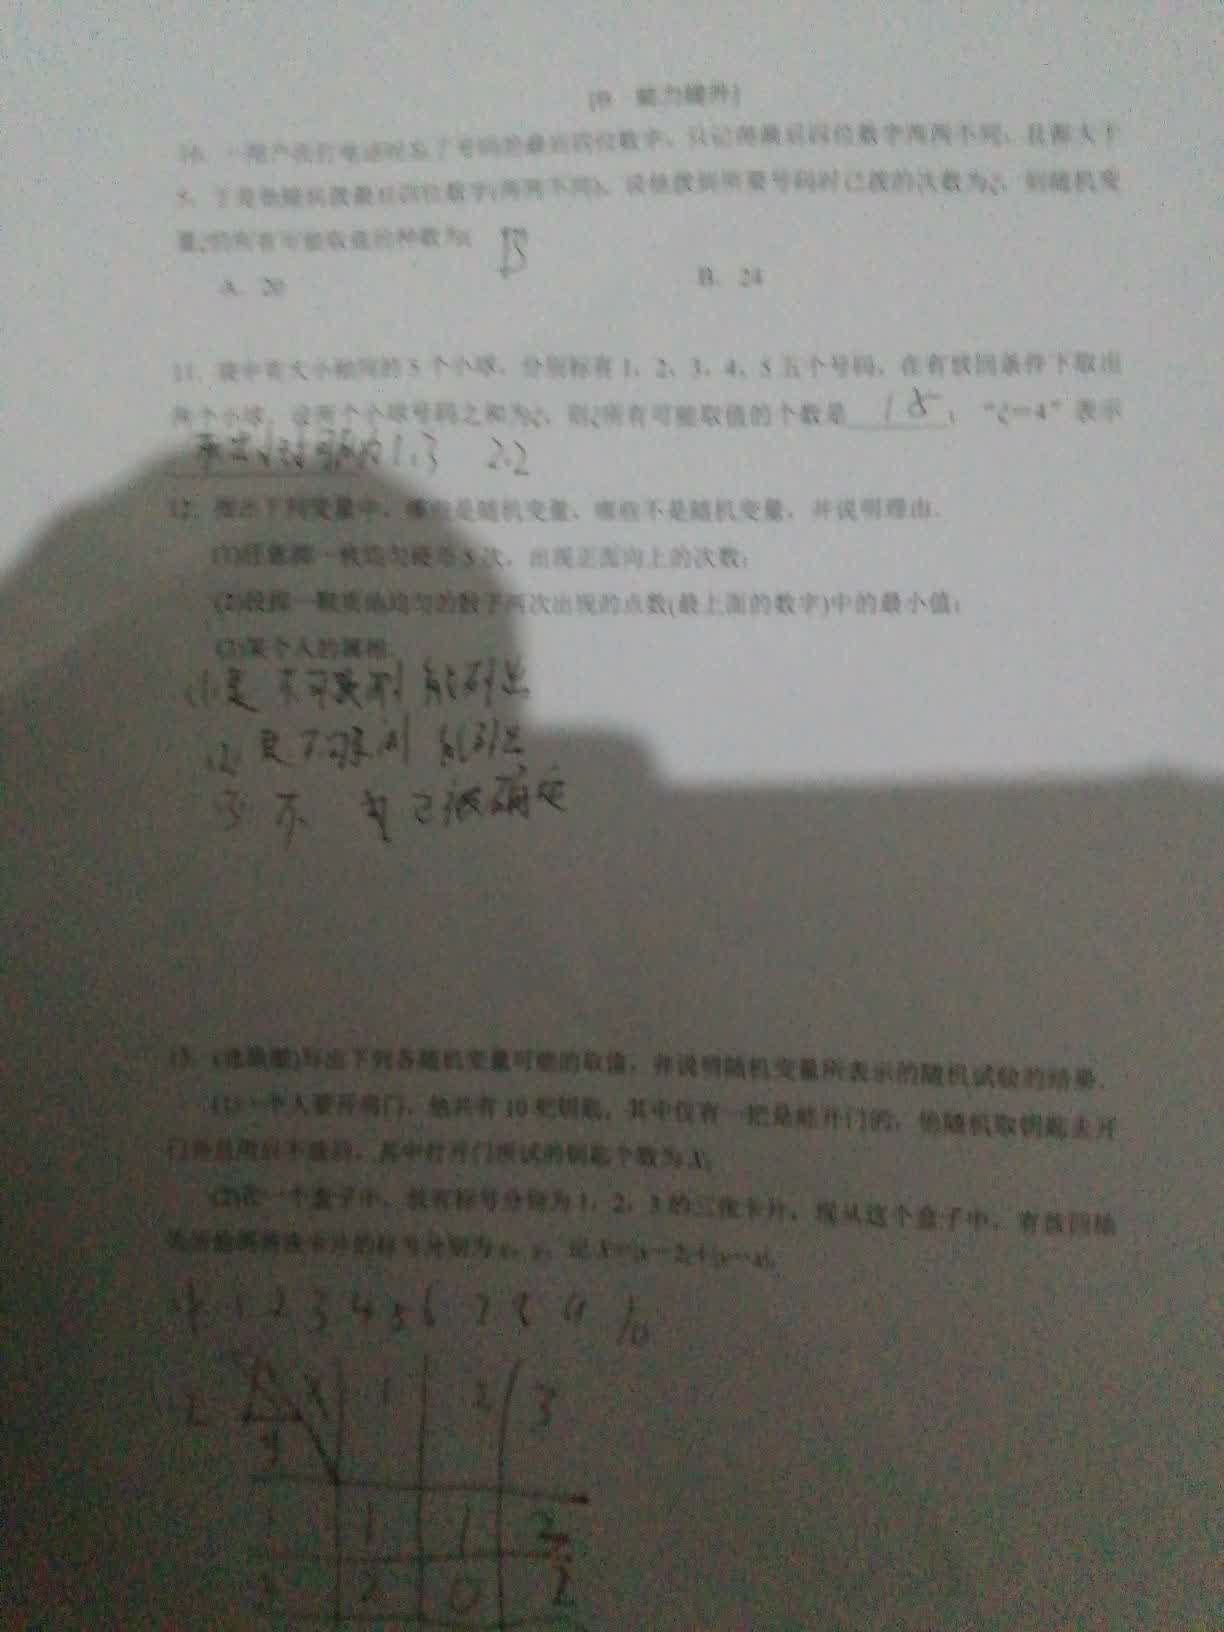 [B 能力提升]
10. 一用户在打电话时忘了号码的最后四位数字，只记得最后四位数字两两不同，且都大于
5，于是他随机拨最后四位数字(两两不同)，设他拨到所要号码时已拨的次数为ξ，则随机变
量ξ的所有可能取值的种数为( B
A. 20 B. 24
11. 袋中有大小相同的5个小球，分别标有1，2，3，4，5五个号码，在有放回条件下取出
两个小球，设两个小球号码之和为ξ，则ξ所有可能取值的个数是 ；“ξ＝4”表示
1.3 2.2
12. 指出下列变量中，哪些是随机变量，哪些不是随机变量，并说明理由．
(1)任意掷一枚均匀硬币5次，出现正面向上的次数；
(2)投掷一颗质地均匀的骰子两次出现的点数(最上面的数字)中的最小值；
(3)某个人的属相．
(1) 是 不可预测 能列出
(2) 是 不可预测 能列出
③ 不 已被确定
13. (选做题)写出下列各随机变量可能的取值，并说明随机变量所表示的随机试验的结果．
(1)一个人要开房门，他共有10把钥匙，其中仅有一把是能开门的，他随机取钥匙去开
门并且用后不放回，其中打开门所试的钥匙个数为X；
(2)在一个盒子中，放有标号分别为1，2，3的三张卡片，现从这个盒子中，有放回抽
x，y，记X＝|x－2|＋|y－x|．
1 2 3 4 5 6 7 8 9 10
2. x 1 2 3
y
1 1 1
2 2 0 2